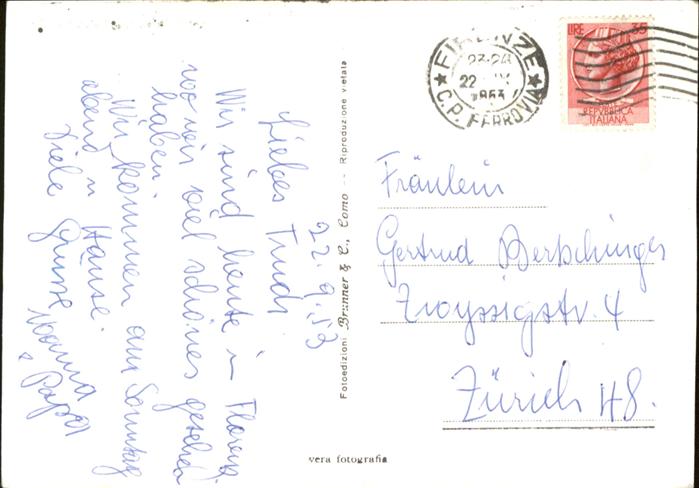 22.9.53
Liebes Trudi
Wir sind heute in Florenz
wo wir viel schönes gesehen
haben.
Wir kommen am Sonntag
abend n Hause.
Viele Grüsse Mama
& Papa
Fotoedizioni Brunner & C., Como -- Riproduzione vietata
FIRENZE
23-24
22
1953
C.P. FERROVIA
LIRE 35
REPUBBLICA
ITALIANA
Fräulein
Gertrud
Zwyssigstr. 4
Zürich 48.
vera fotografia